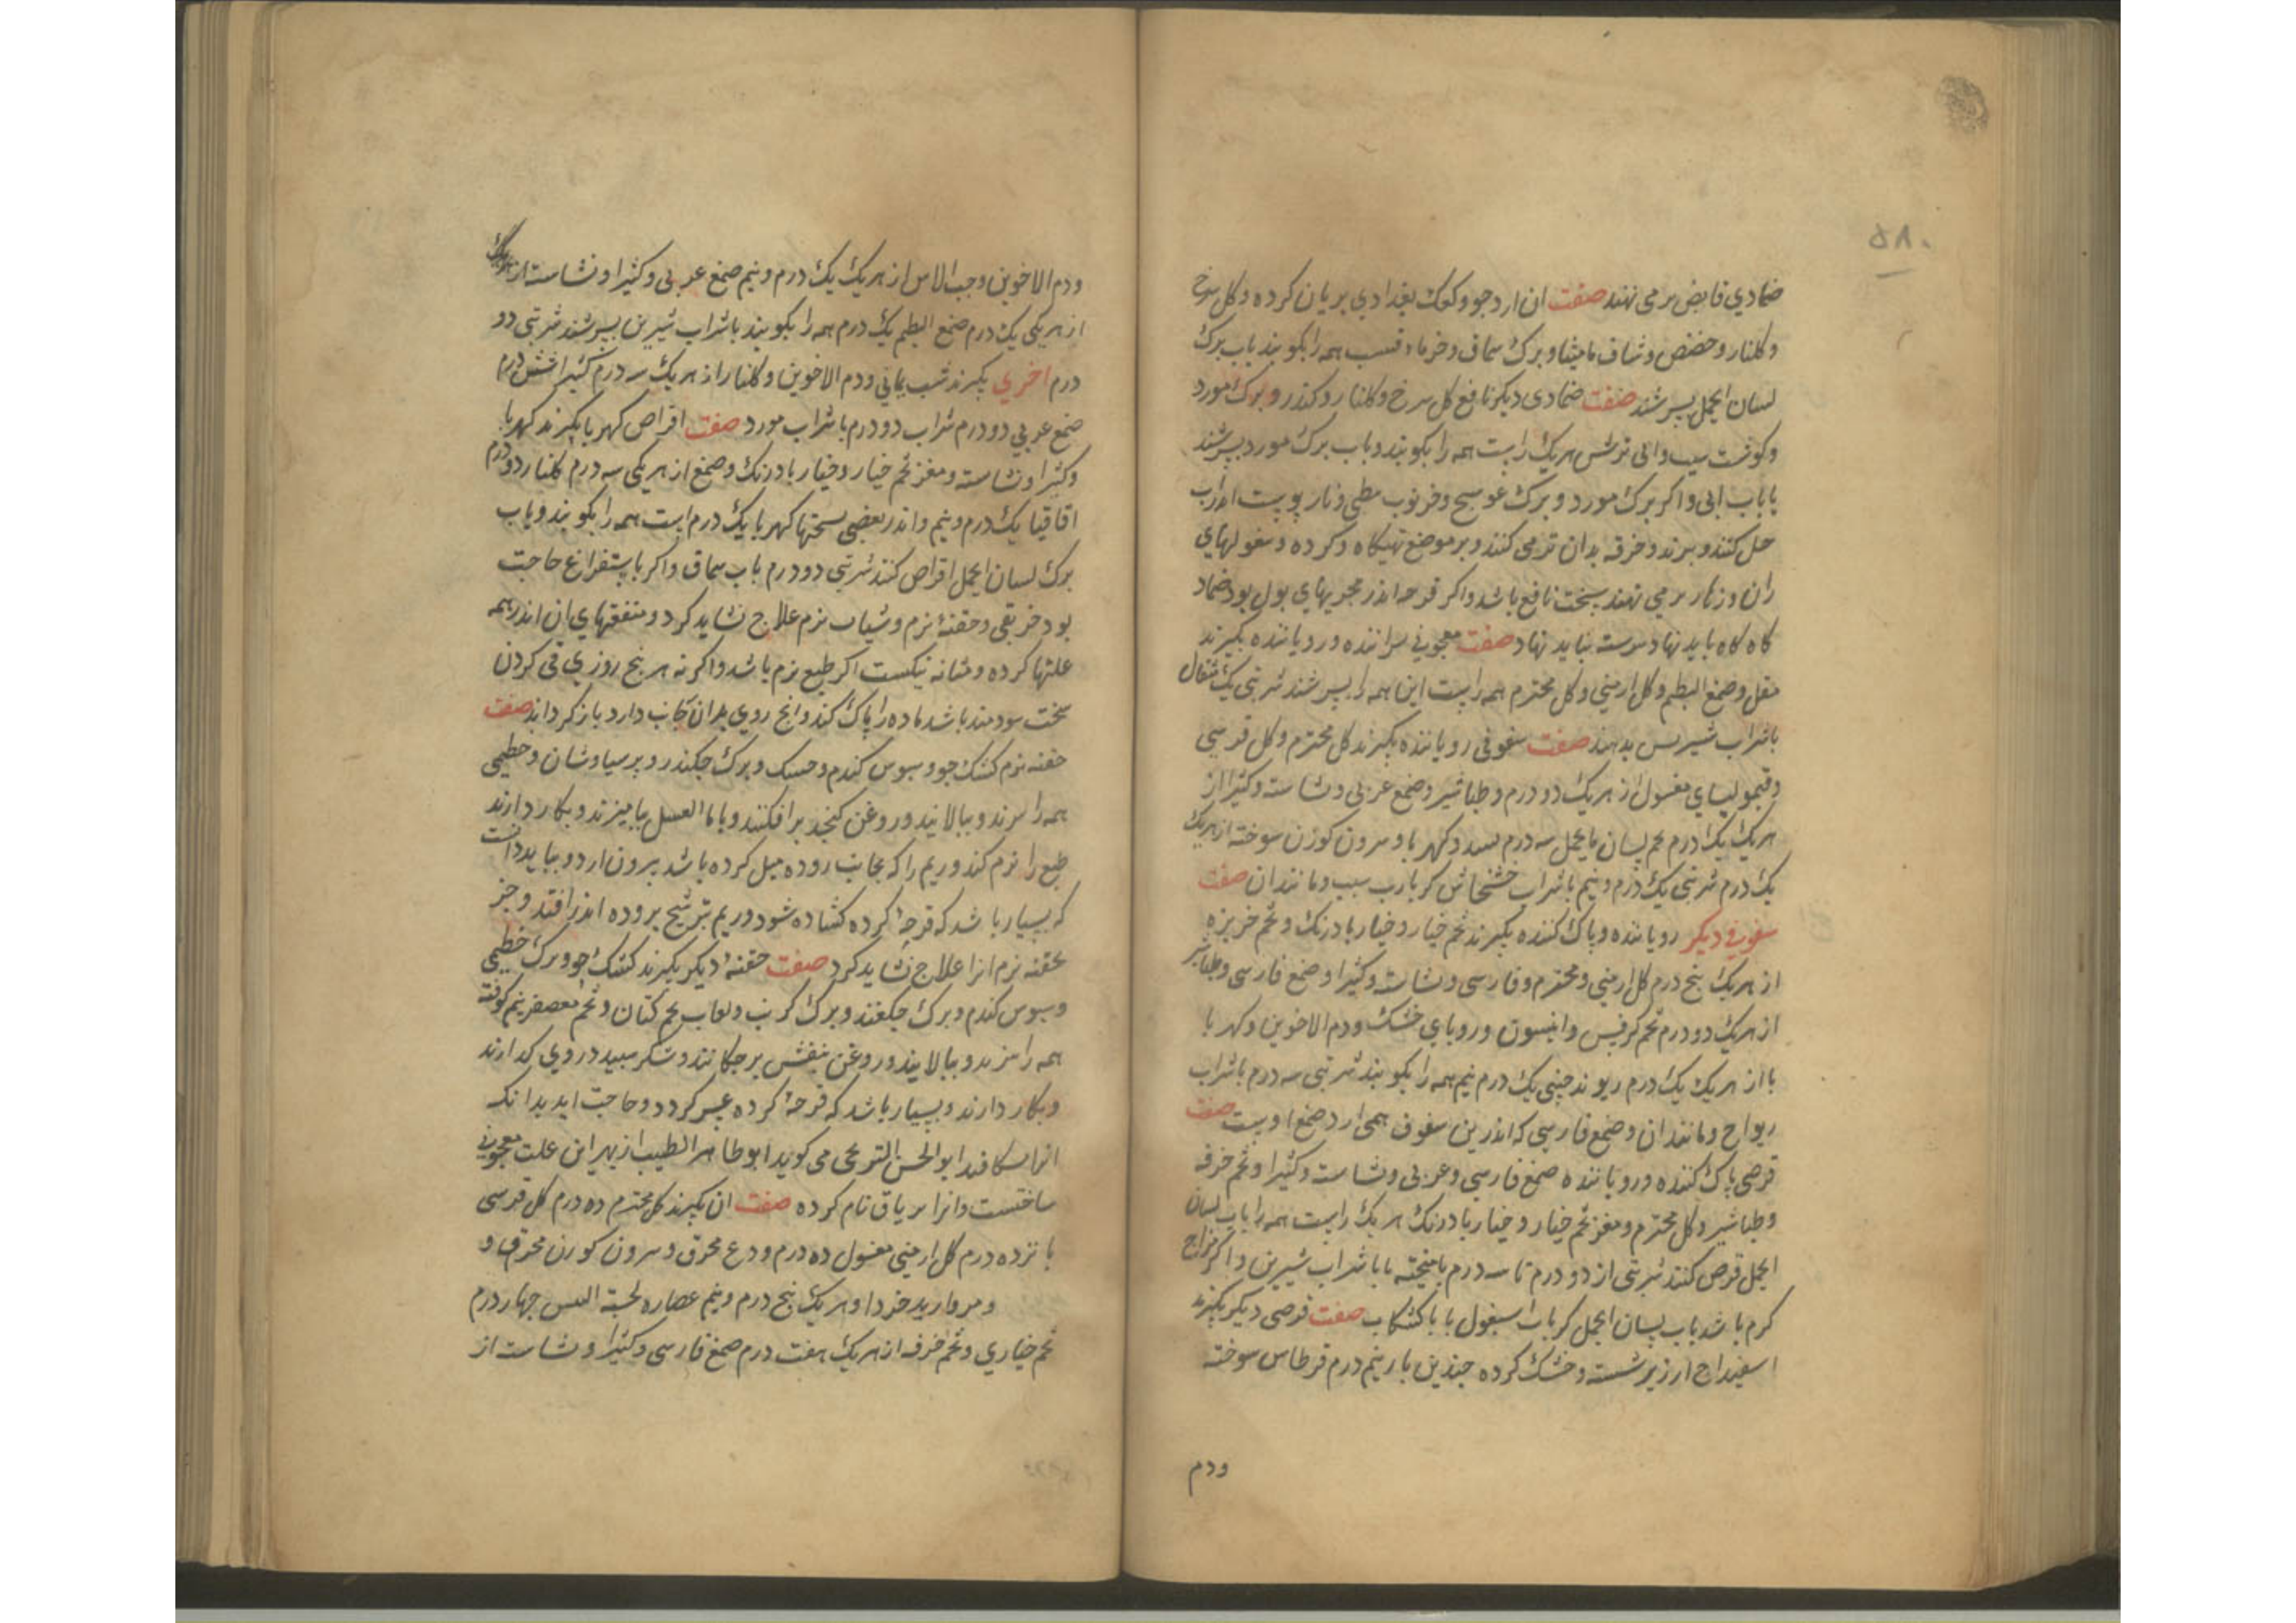 ۵۸۰
ضمادی قابض بر می نهند صفت ان ارد جو و کعک بغدادی بریان کرده و کل سرخ
و کلنار و حضض و شاف مامیثا و برک سماق و خرماء قسب همه را بکوبند باب برک
لسان الحمل بسرشند صفت ضمادی دیکر نافع کل سرخ و کلنار و کندر و برک مورد
و کوشت سیب و ابی ترش هریک راست همه را بکوبند و باب برک مورد بسرشند
یا باب ابی و اکر برک مورد و برک عوسج و خرنوب مطی و نار پوست اندراب
حل کنند و بپزند و خرقه بدان تر می کنند و بر موضع تهیکاه و کرده و سفولهای
ران و زهار بر می نهند سخت نافع باشد و اکر قرحه اندر مجریهای بول بود ضماد
کاه کاه باید نهاد پیوسته نباید نهاد صفت معجونی براننده و رویاننده بکیرند
مقل و صمغ البطم و کل ارمنی و کل مختوم همه راست این همه را بسرشند شربتی یک مثقال
باشراب شیرین بدهند صفت سفوفی رویاننده بکیرند کل مختوم و کل قرسی
و قیمولیای مغسول از هریک دو درم و طباشیر و صمغ عربی و نشاسته و کثیرا از
هریک یک درم تخم لسان الحمل سه درم بسد و کهربا و سرون کوزن سوخته از هریک
یک درم شربتی یک درم و نیم باشراب خشخاش کر یارب سیب و مانند ان صفت
سفوفی دیکر رویاننده و پاک کننده بکیرند تخم خیار و خیار بادرنک و تخم خربزه
از هریک پنج درم کل ارمنی و مختوم و فارسی و نشاسته و کثیرا و صمغ فارسی و طباشیر
از هریک دو درم تخم کرفس و انیسون و روبای خشک و دم الاخوین و کهربا
با از هریک یک درم ریوند چینی یک درم نیم همه را بکوبند شربتی سه درم باشراب
ریواج و مانند ان و صمغ فارسی که اندرین سفوف همی ارد صمغ اوست صفت
قرصی پاک کننده و رویاننده صمغ فارسی و عربی و نشاسته و کثیرا و تخم خرفه
و طباشیر و کل مختوم و مغز تخم خیار و خیار بادرنک هریک راست همه را باب لسان
الحمل قرص کنند شربتی از دو درم تا سه درم بامیخته یا باشراب شیرین و اکر مزاج
کرم باشد باب لسان الحمل کر باب اسبغول یا باکشکاب صفت قرصی دیکر بکیرند
اسفیداج ارزیر شسته و خشک کرده چندین بار نیم درم قرطاس سوخته
ودم
ودم الاخوین و حب الاس از هریک یک درم و نیم صمغ عربی و کثیرا و نشاسته از هریک
از هریکی یک درم صمغ البطم یک درم همه را بکوبند باشراب شیرین بسرشند شربتی دو
درم اخری بکیرند شب یمانی و دم الاخوین و کلنار از هریک سه درم کثیرا شش درم
صمغ عربی دو درم شراب دو درم باشراب مورد صفت اقراص کهربا بکیرند کهربا
و کثیرا و نشاسته و مغز تخم خیار و خیار بادرنک و صمغ از هریکی سه درم کلنار دو درم
اقاقیا یک درم و نیم و اندر بعضی نسختها کهربا یک درم است همه را بکوبند و باب
برک لسان الحمل اقراص کنند شربتی دو درم باب سماق و اکر باستفراغ حاجت
بود جز بقی و حقنهٔ نرم و شیاف نرم علاج نشاید کرد و منفعتهای ان اندر همه
علتها کرده و مثانه نیکست اکر طبع نرم باشد و اکر نه هر پنج روزی قی کردن
سخت سودمند باشد ماده را پاک کند و انج روی بدان جانب دارد باز کرداند صفت
حقنه نرم کشک جو و سبوس کندم و حسک و برک چکندر و برسیاوشان و خطمی
همه را بپزند و بپالایند و روغن کنجد برافکنند و با ما العسل بیامیزند و بکار دارند
طبع را نرم کند و ریم را که بجانب روده میل کرده باشد بیرون ارد و بباید دانست
که بسیار باشد که قرحهٔ کرده کشاده شود و ریم بترشیح بروده اندر افتد و جز
بحقنه نرم انرا علاج نشاید کرد صفت حقنهٔ دیکر بکیرند کشک جو و برک خطمی
و سبوس کندم و برک چکندر و برک کرنب و لعاب تخم کتان و تخم معصفر نیم کوفته
همه را بپزند و بپالایند و روغن بنفش برچکانند و شکر سپید در وی کدازند
و بکار دارند و بسیار باشد که قرحهٔ کرده عسر کردد و حاجت اید بدانک
ابوالحسن الترنجی می کوید ابو طاهر الطبیب از بهر این علت معجونی
ساختست و انرا تریاق نام کرده صفت ان بکیرند کل مختوم ده درم کل قرسی
پانزده درم کل ارمنی مغسول ده درم ودع محرق و سرون کوزن محرق و
و مروارید خرد او هریک پنج درم و نیم عصاره لحیة التیس چهار درم
تخم خیاری و تخم خرفه از هریک هفت درم صمغ فارسی و کثیرا و نشاسته از